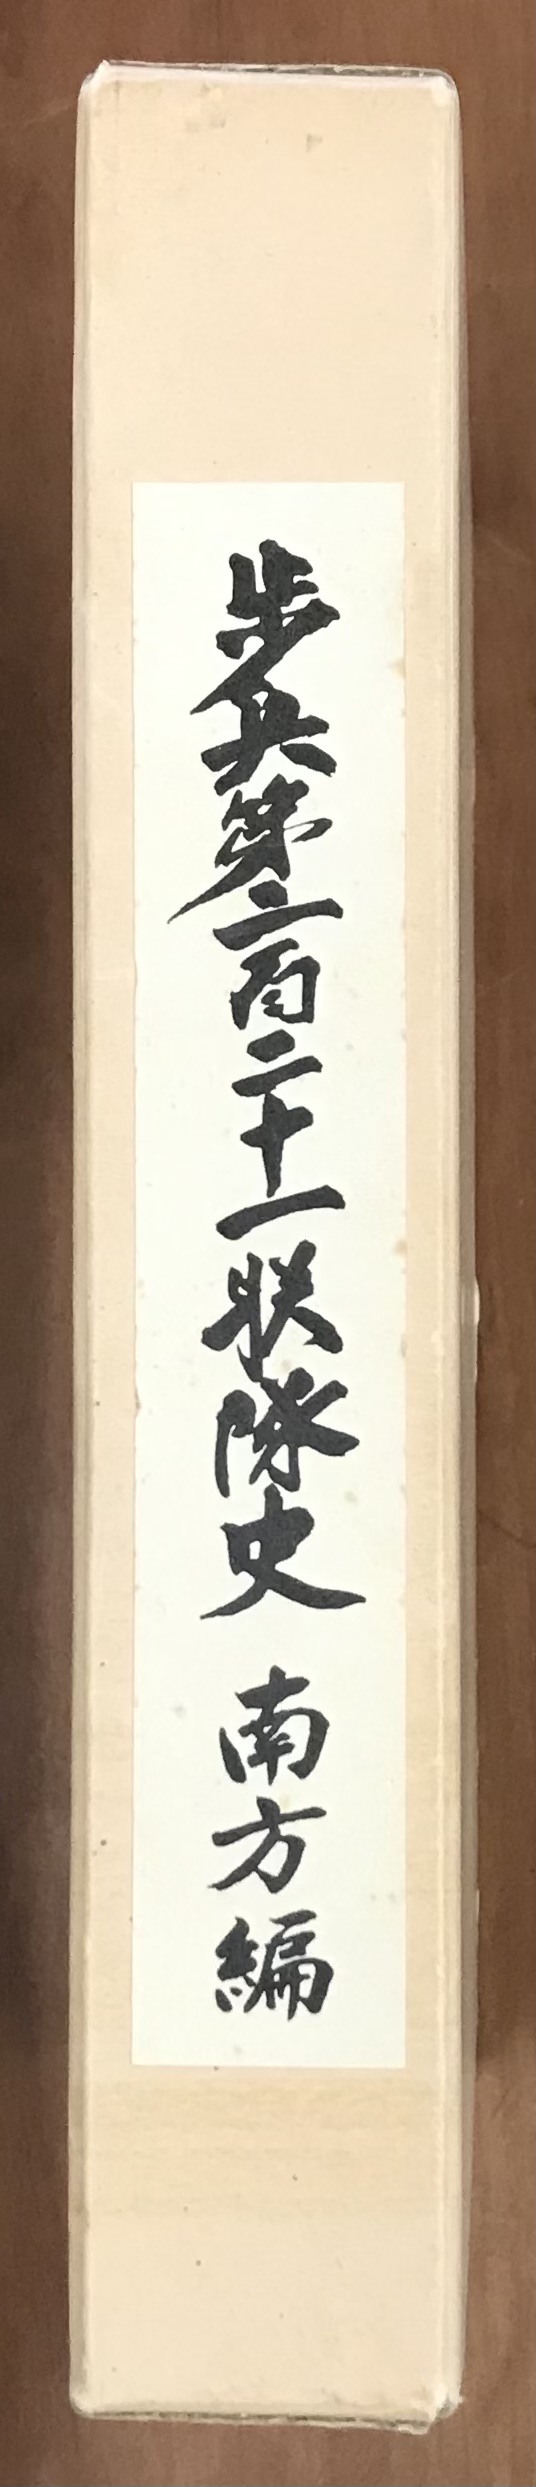 歩兵第二百二十一聯隊史 南方編